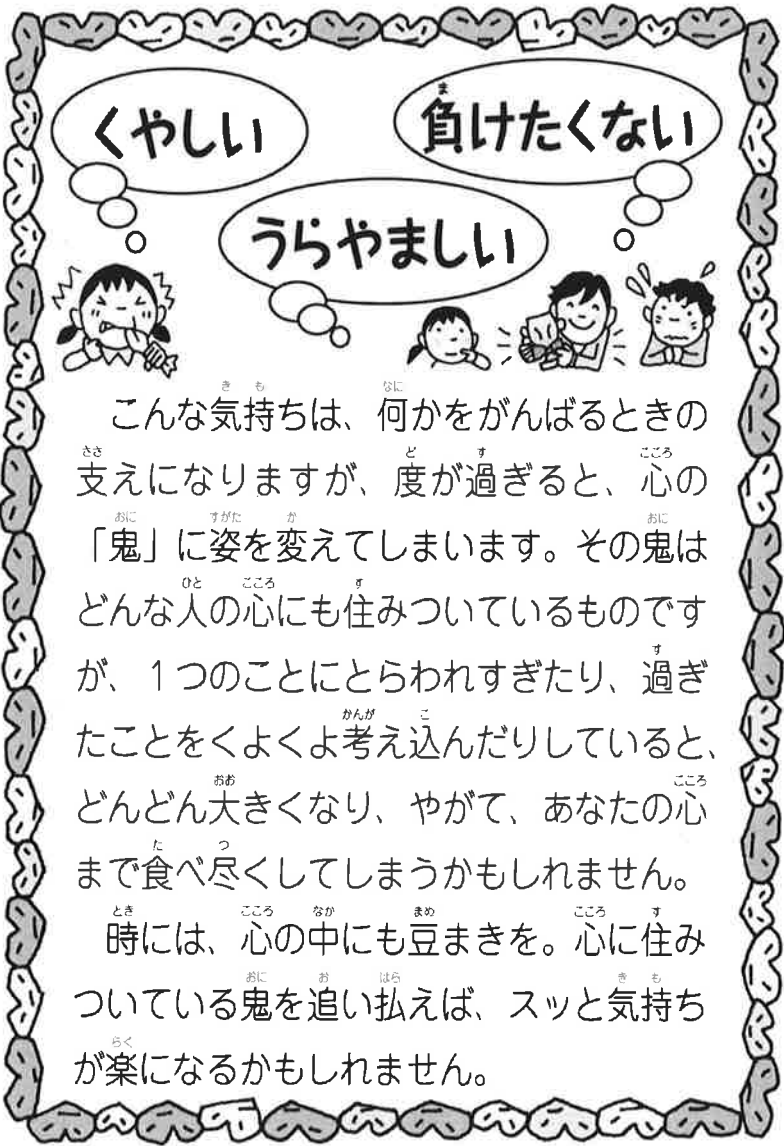 くやしい
負けたくない
うらやましい
こんな気持ちは、何かをがんばるときの
支えになりますが、度が過ぎると、心の
「鬼」に姿を変えてしまいます。その鬼は
どんな人の心にも住みついているものです
が、1つのことにとらわれすぎたり、過ぎ
たことをくよくよ考え込んだりしていると、
どんどん大きくなり、やがて、あなたの心
まで食べ尽くしてしまうかもしれません。
時には、心の中にも豆まきを。心に住み
ついている鬼を追い払えば、スッと気持ち
が楽になるかもしれません。